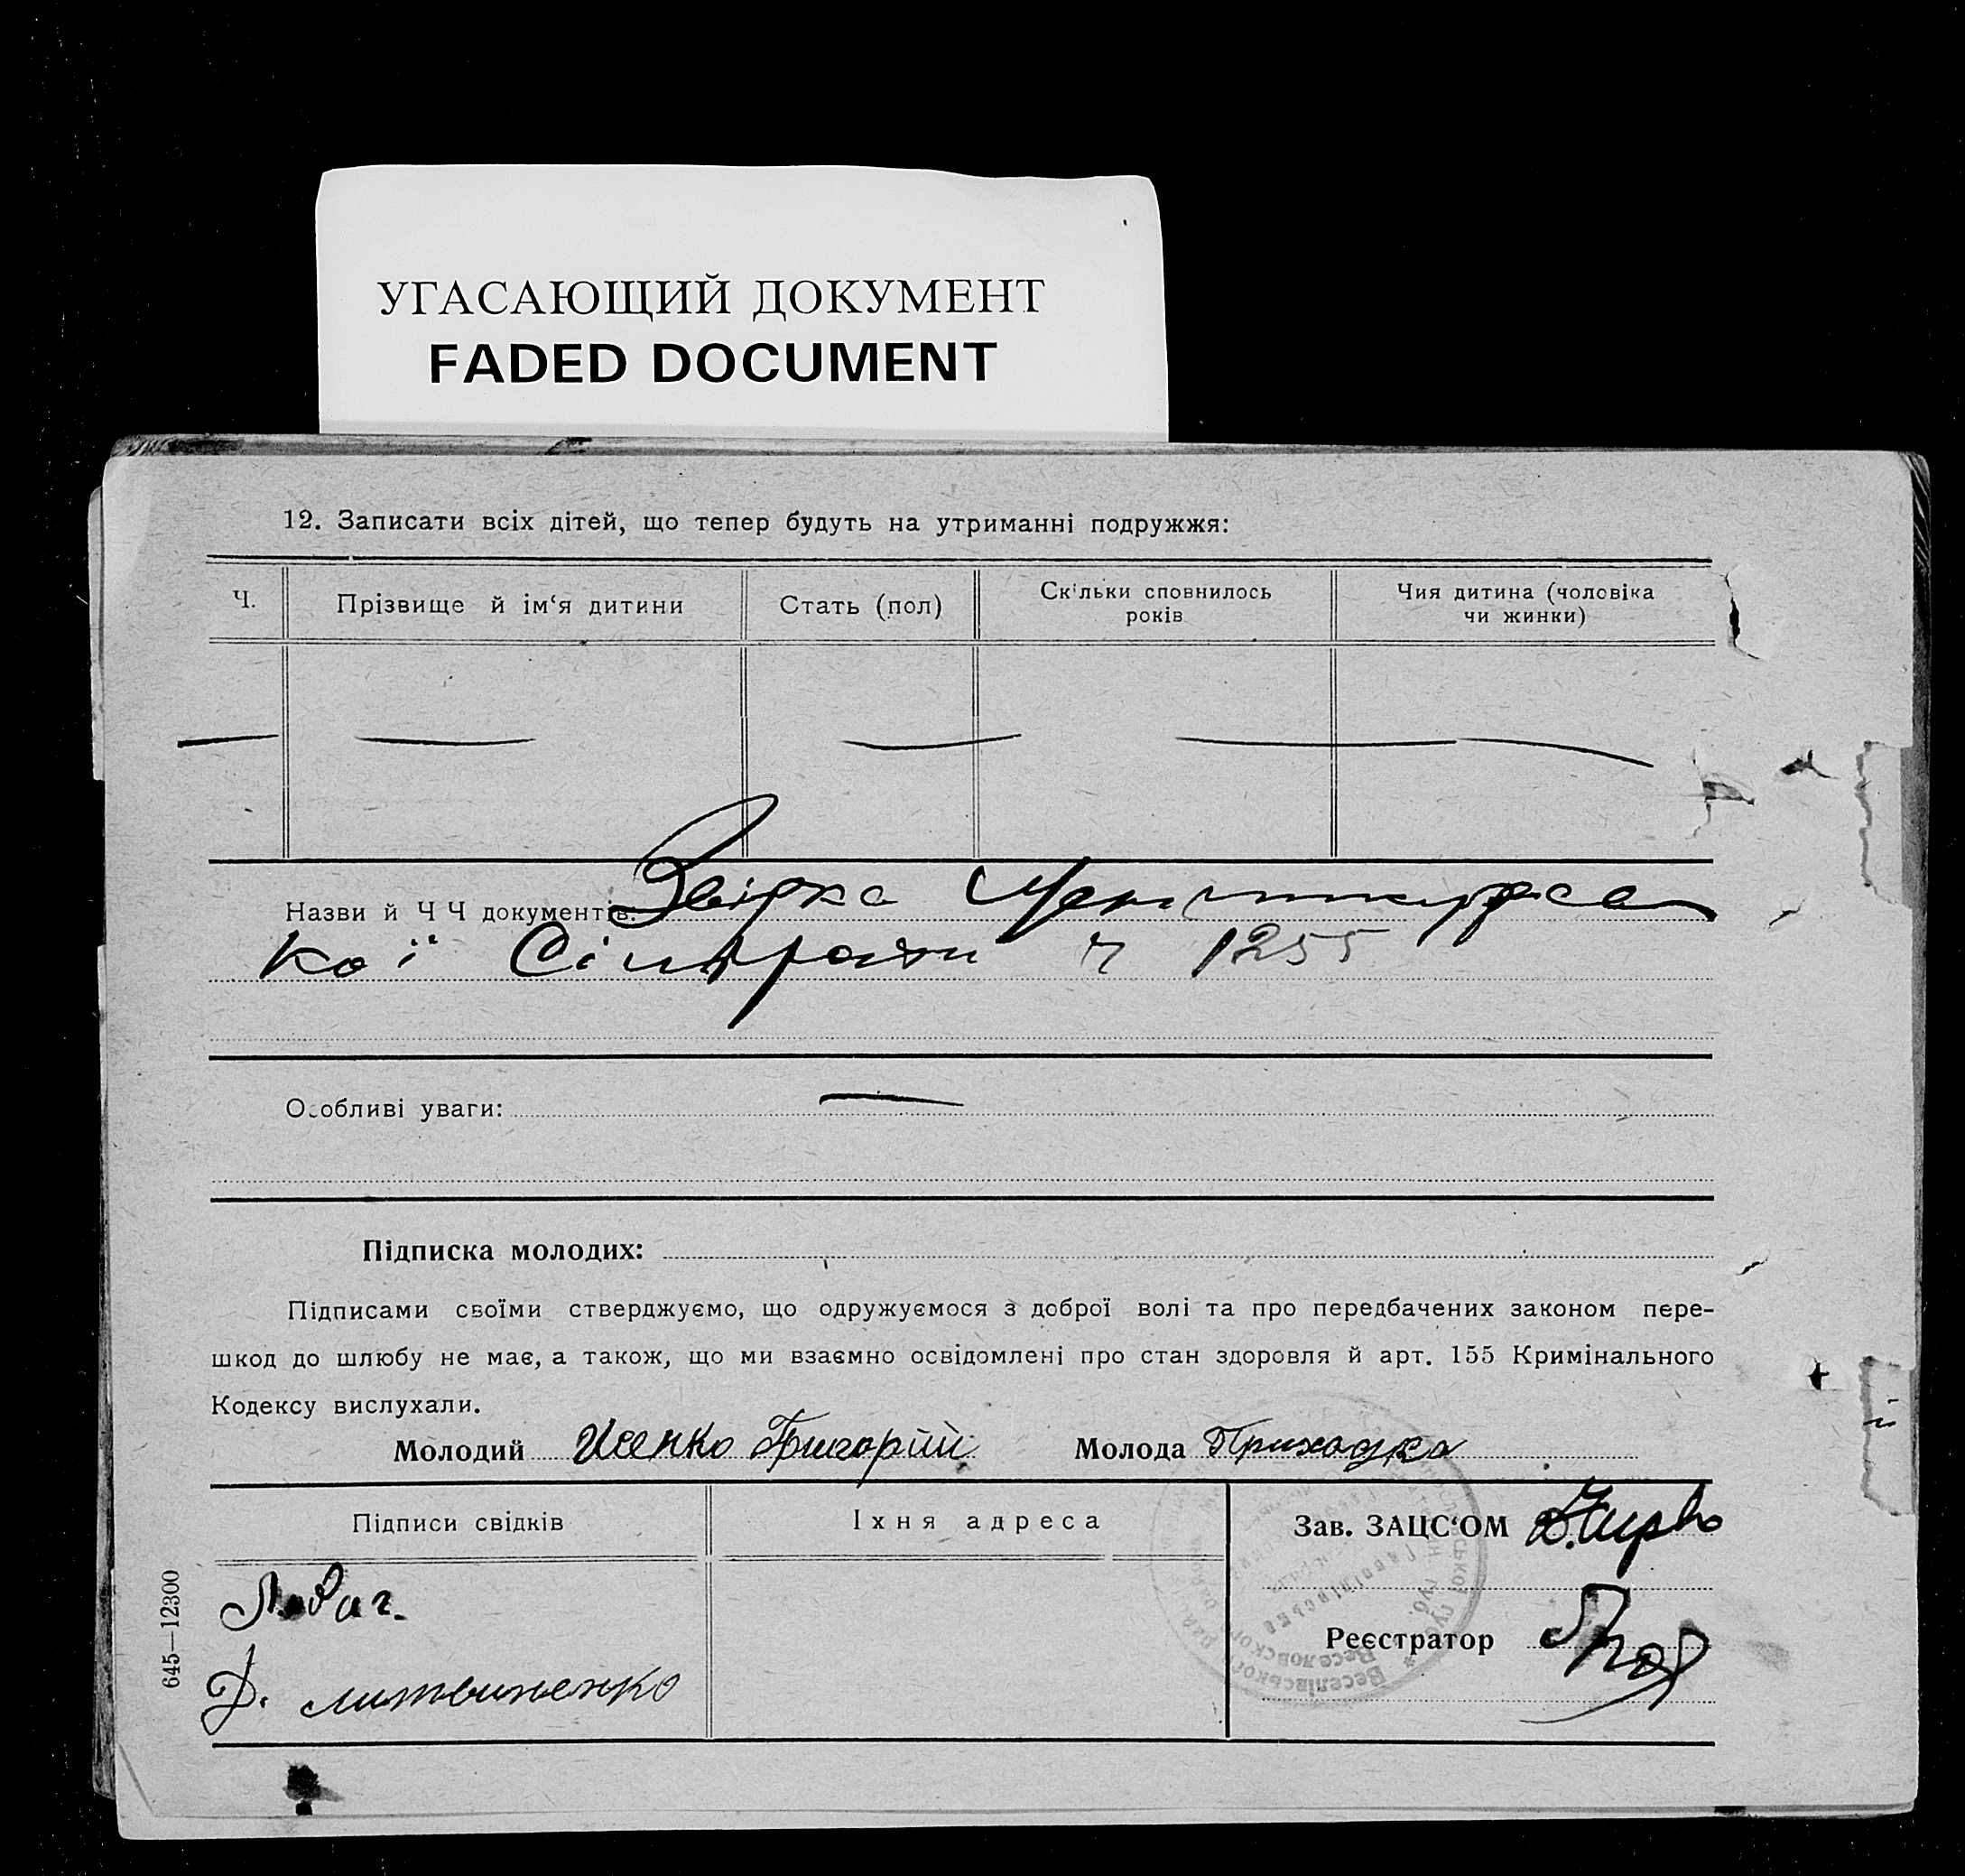 УГАСАЮЩИЙ ДОКУМЕНТ
FADED DOCUMENT
12. Записати всіх дітей, що тепер будуть на утриманні подружжя:
Ч.
Прізвище й ім‘я дитини
Стать (пол)
Скільки сповнилось
років
Чия дитина (чоловіка
чи жинки)
Назви й Ч Ч документів: Звірка
кої Сільради ч 1255
Особливі уваги:
Підписка молодих:
Підписами своїми стверджуємо, що одружуємося з доброї волі та про передбачених законом пере-
шкод до шлюбу не має, а також, що ми взаємно освідомлені про стан здоровля й арт. 155 Кримінального
Кодексу вислухали.
Молодий Исенко Григорій Молода Приходка
Підписи свідків
Їхня адреса
Зав. ЗАЦС‘ОМ
Реєстратор
Д. Литвиненко
645—12300
Веселівського
Веселовского